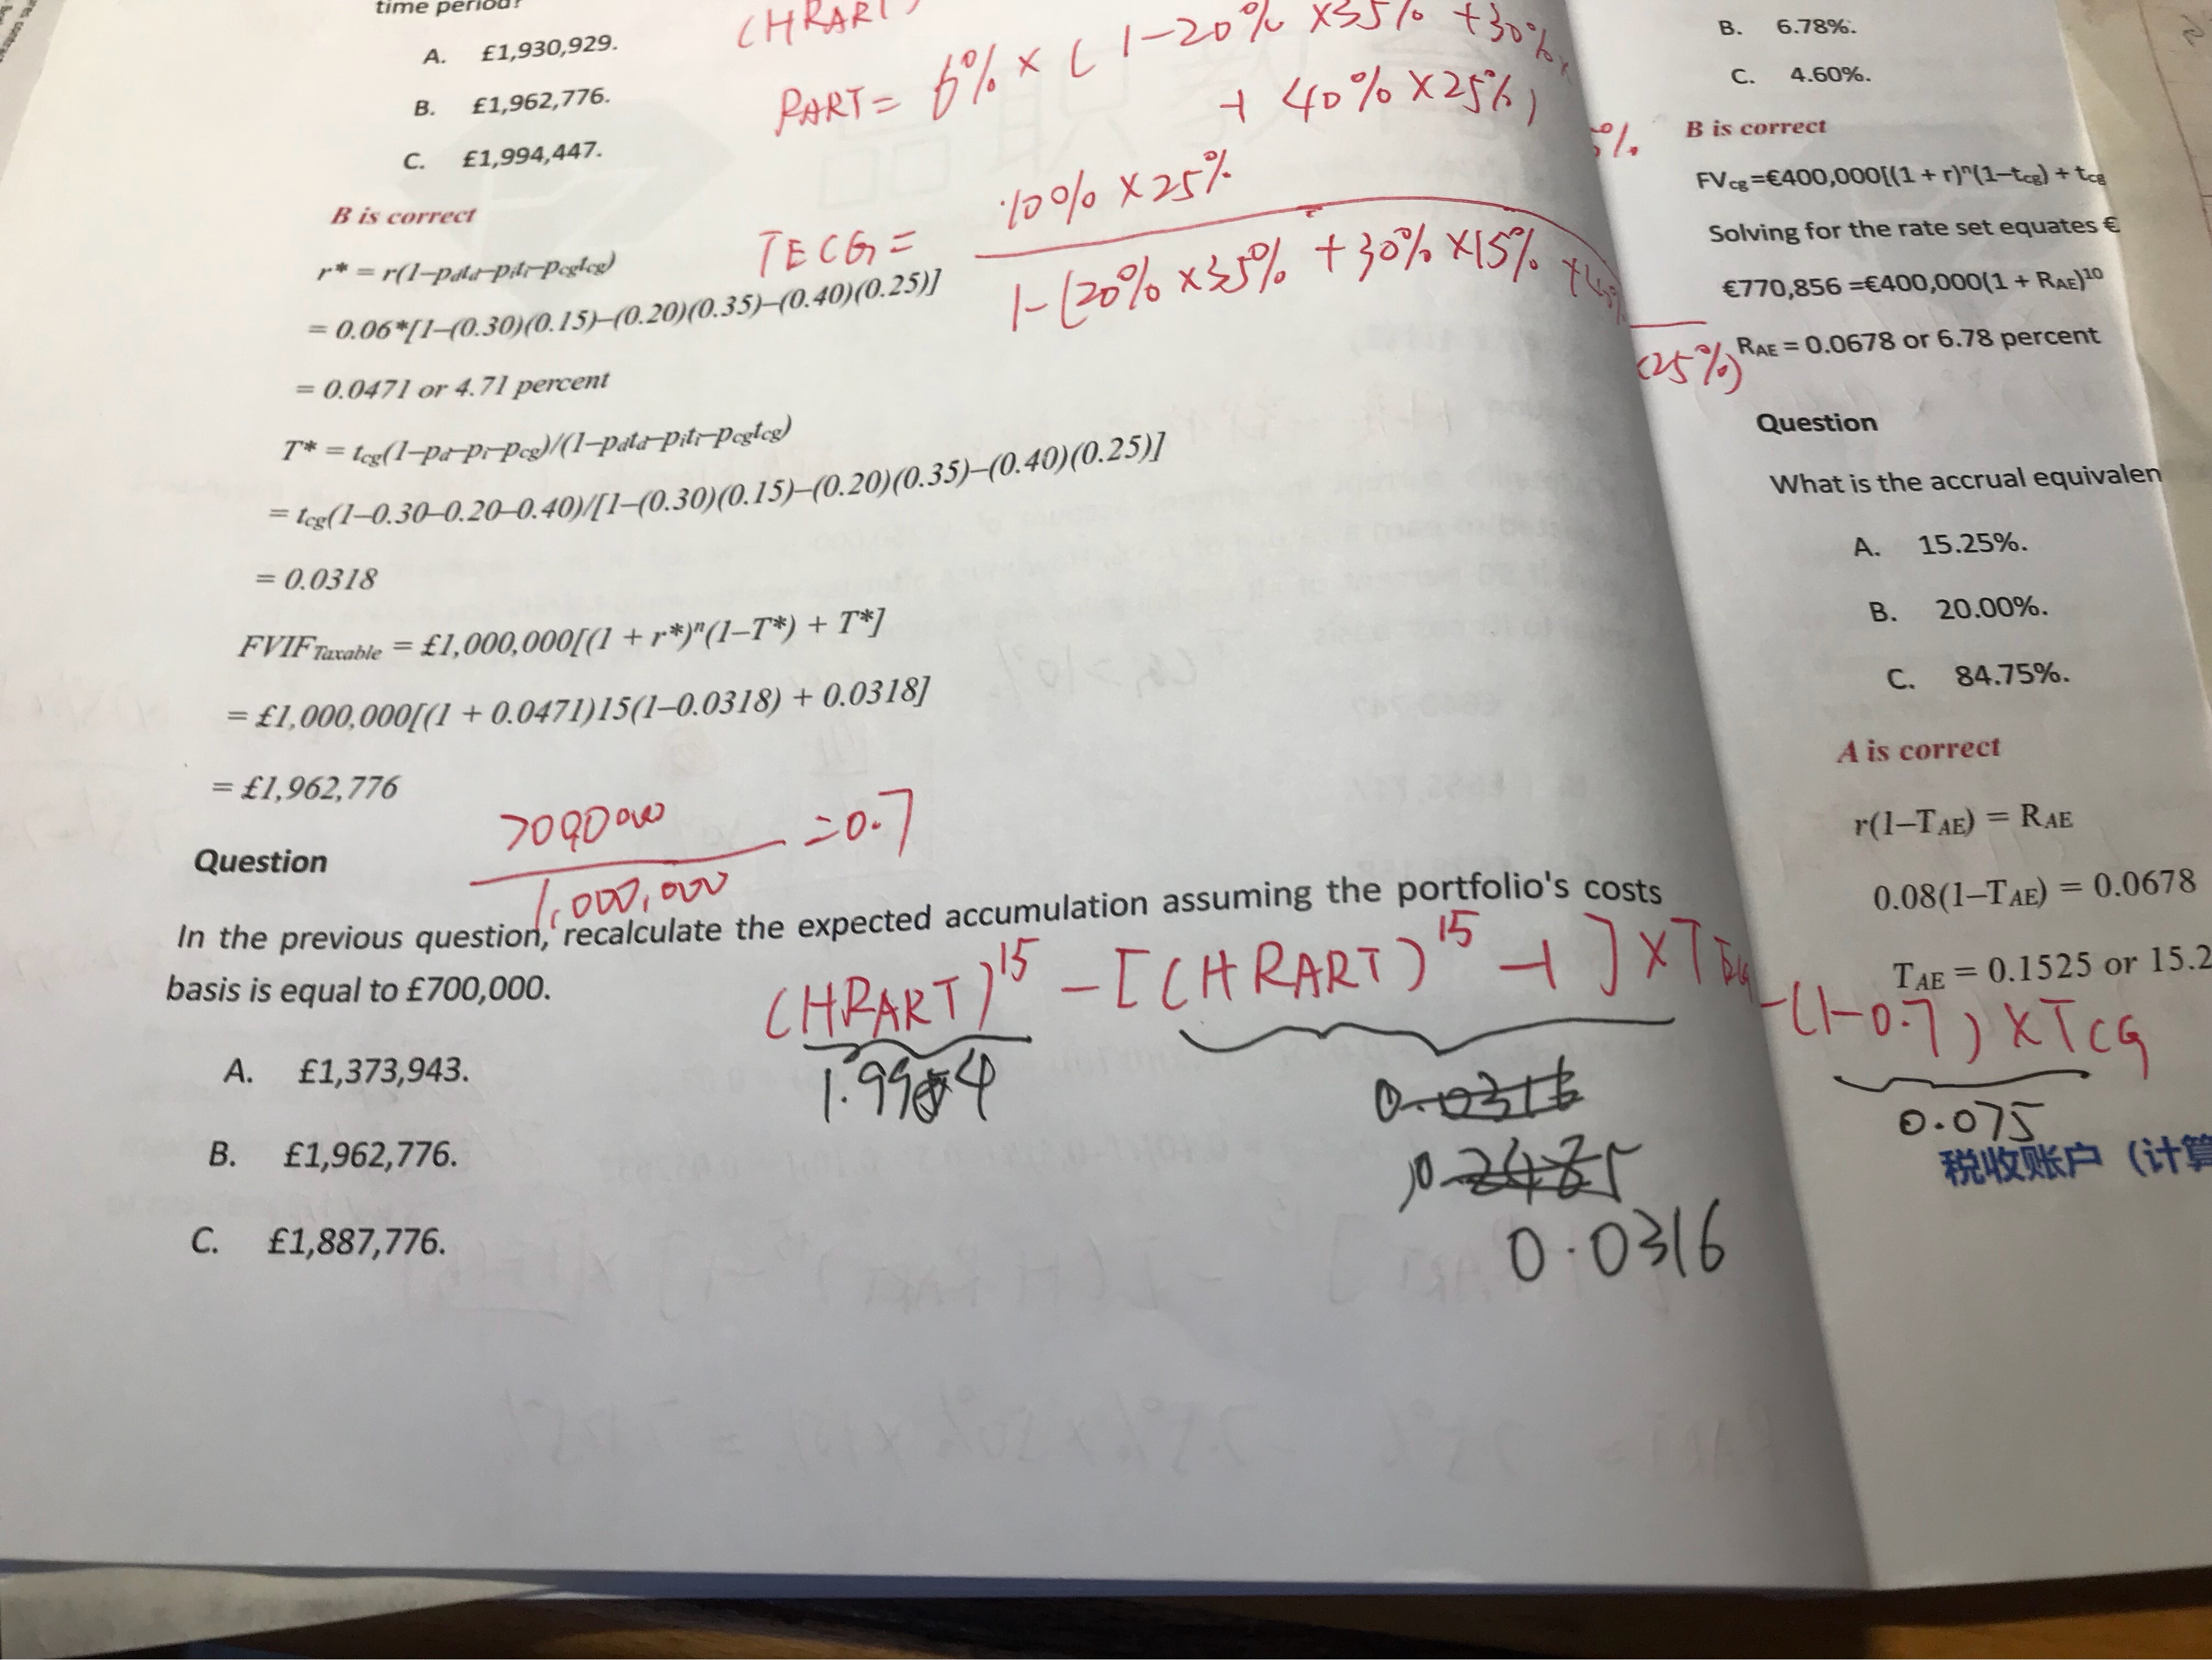 time period?
A. £1,930,929.
B. £1,962,776.
C. £1,994,447.
B is correct
r* = r(1–pdtd–piti–pcgtcg)
= 0.06*[1–(0.30)(0.15)–(0.20)(0.35)–(0.40)(0.25)]
= 0.0471 or 4.71 percent
T* = tcg(1–pd–pi–pcg)/(1–pdtd–piti–pcgtcg)
= tcg(1–0.30–0.20–0.40)/[1–(0.30)(0.15)–(0.20)(0.35)–(0.40)(0.25)]
= 0.0318
FVIFTaxable = £1,000,000[(1 + r*)ⁿ(1–T*) + T*]
= £1,000,000[(1 + 0.0471)15(1–0.0318) + 0.0318]
= £1,962,776
(HRART)
PART = 6% × (1-20% ×35% +30%×
+ 40% ×25%)
TECG =
10% ×25%
1-(20% ×35% +30% ×15%
(25%)
Question
=0.7
1,000,000
In the previous question, recalculate the expected accumulation assuming the portfolio's costs
basis is equal to £700,000.
(HRART)¹⁵ - [(HRART)¹⁵ -1] ×T
-(1-0.7)×TCG
0.075
0.0316
A. £1,373,943.
B. £1,962,776.
C. £1,887,776.
B. 6.78%.
C. 4.60%.
%.
B is correct
FVcg=€400,000[(1 + r)ⁿ(1–tcg) + tcg
Solving for the rate set equates €
€770,856 =€400,000(1 + RAE)¹⁰
RAE = 0.0678 or 6.78 percent
Question
What is the accrual equivalen
A. 15.25%.
B. 20.00%.
C. 84.75%.
A is correct
r(1–TAE) = RAE
0.08(1–TAE) = 0.0678
TAE = 0.1525 or 15.2
税收账户（计算